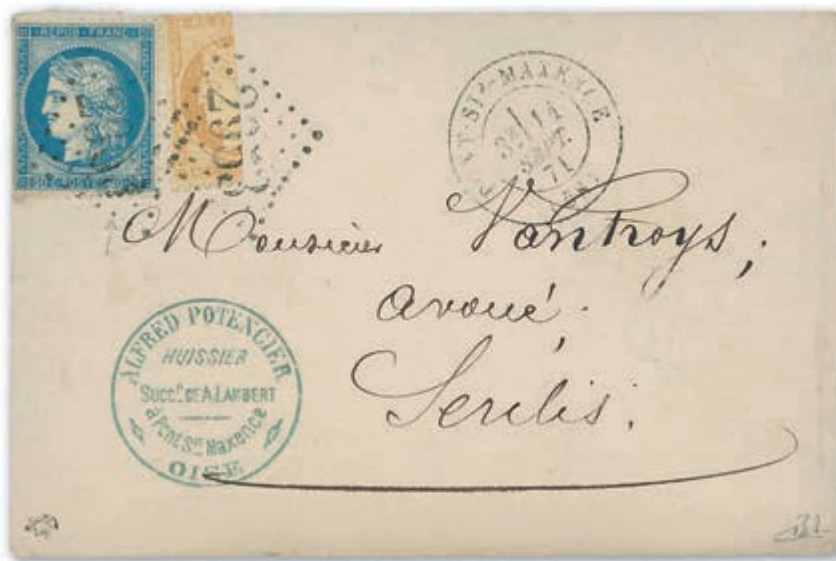 REPUB · FRANC ·
C · POSTE
PONT-STE-MAXENCE
14
SEPT.
71
Monsieur Vantroys,
avoué.
Senlis.
ALFRED POTENCIER
HUISSIER
SUCCR DE A. LAMBERT
à Pont Ste Maxence
OISE